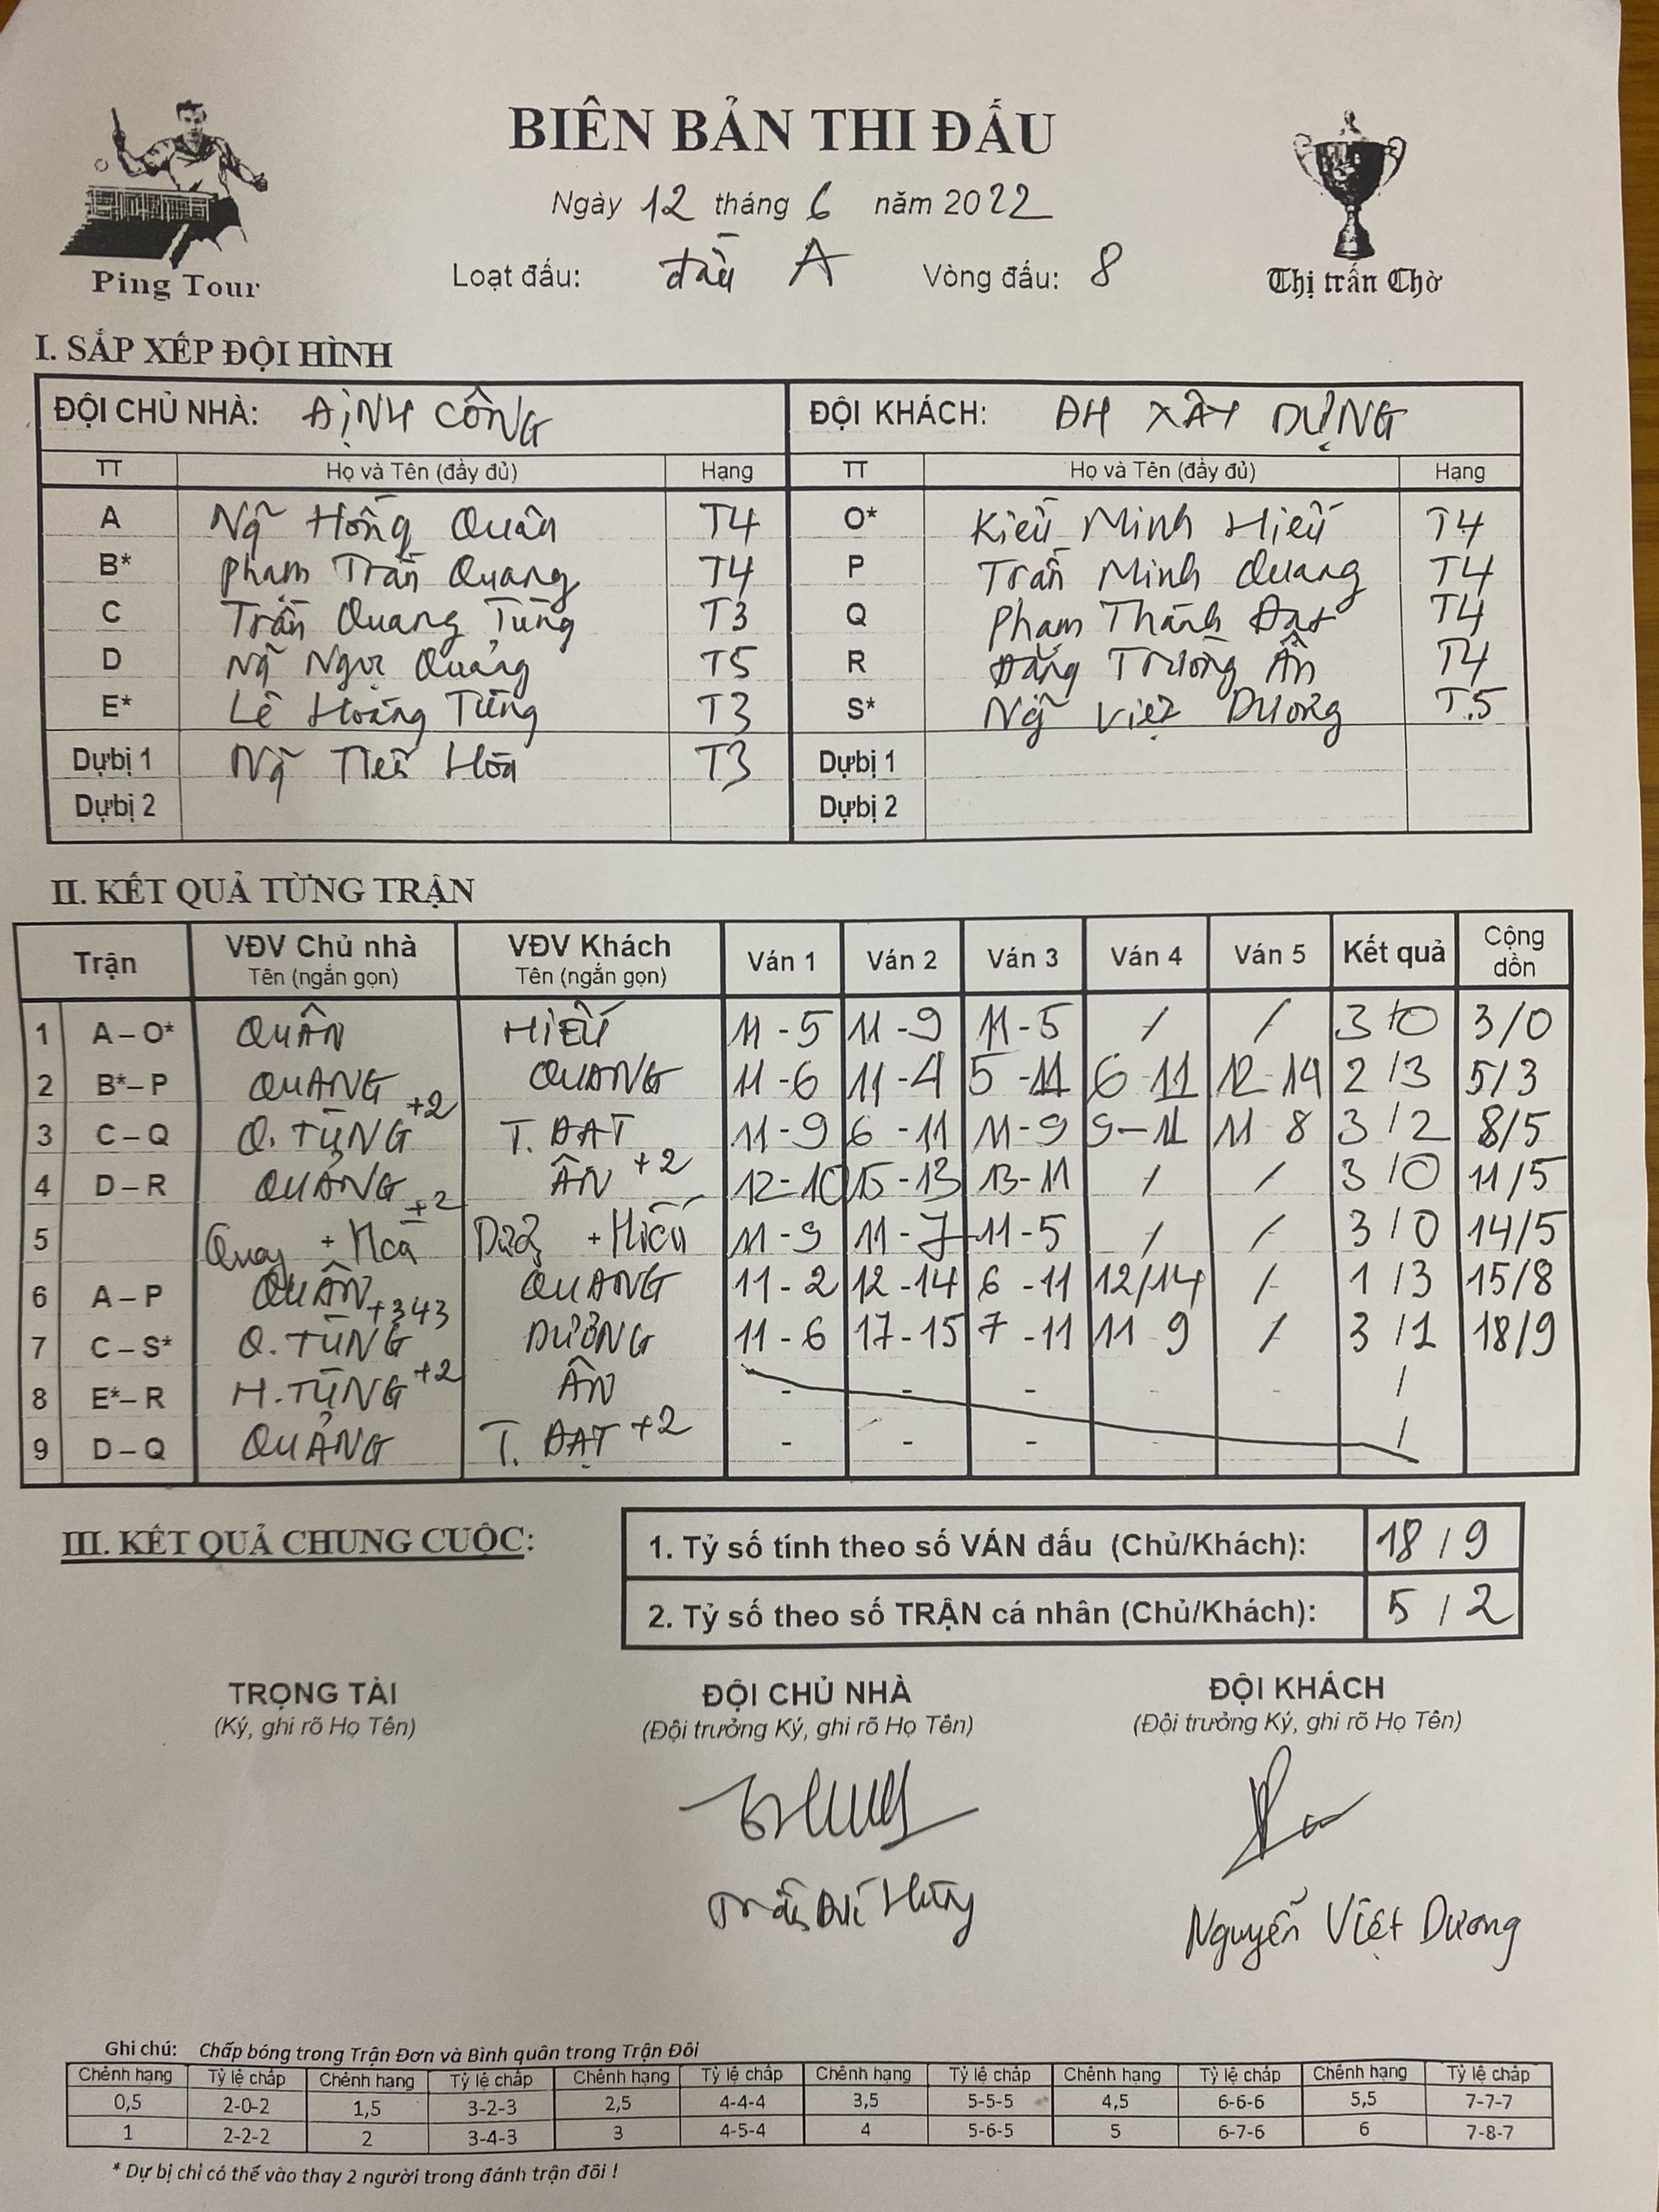 BIÊN BẢN THI ĐẤU
Ngày 12 tháng 6 năm 2022
Loạt đấu: đấu A Vòng đấu: 8
Ping Tour
Thị trấn Chờ
I. SẮP XẾP ĐỘI HÌNH
ĐỘI CHỦ NHÀ: ĐỊNH CÔNG ĐỘI KHÁCH: ĐH XÂY DỰNG
TT Họ và Tên (đầy đủ) Hạng TT Họ và Tên (đầy đủ) Hạng
A Ng̃ Hồng Quân T4 O* Kiều Minh Hiếu T4
B* Phạm Trần Quang T4 P Trần Minh Quang T4
C Trần Quang Tùng T3 Q Phạm Thành Đạt T4
D Ng̃ Ngọc Quảng T5 R Đặng Trường Ân T4
E* Lê Hoàng Tùng T3 S* Ng̃ Việt Dương T.5
Dự bị 1 Ng̃ Tiến Hòa T3 Dự bị 1
Dự bị 2 Dự bị 2
II. KẾT QUẢ TỪNG TRẬN
Trận VĐV Chủ nhà Tên (ngắn gọn) VĐV Khách Tên (ngắn gọn) Ván 1 Ván 2 Ván 3 Ván 4 Ván 5 Kết quả Cộng dồn
1 A – O* QUÂN HIẾU 11 - 5 11 - 9 11 - 5 / / 3 / 0 3/0
2 B* – P QUANG QUANG 11 - 6 11 - 4 5 - 11 6 - 11 12 - 14 2 / 3 5/3
3 C – Q Q. TÙNG +2 T. ĐẠT 11 - 9 6 - 11 11 - 9 9 - 11 11 8 3 / 2 8/5
4 D – R QUẢNG ÂN +2 12 - 10 15 - 13 13 - 11 / / 3 / 0 11/5
5 + +2 + Hiếu 11 - 9 11 - 7 11 - 5 / / 3 / 0 14/5
6 A – P QUÂN QUANG 11 - 2 12 - 14 6 - 11 12/14 / 1 / 3 15/8
7 C – S* Q. TÙNG +343 DƯƠNG 11 - 6 17 - 15 7 - 11 11 9 / 3 / 1 18/9
8 E* – R H. TÙNG +2 ÂN - - - /
9 D – Q QUẢNG T. ĐẠT +2 - - - /
III. KẾT QUẢ CHUNG CUỘC:
1. Tỷ số tính theo số VÁN đấu (Chủ/Khách): 18 / 9
2. Tỷ số theo số TRẬN cá nhân (Chủ/Khách): 5 / 2
TRỌNG TÀI ĐỘI CHỦ NHÀ ĐỘI KHÁCH
(Ký, ghi rõ Họ Tên) (Đội trưởng Ký, ghi rõ Họ Tên) (Đội trưởng Ký, ghi rõ Họ Tên)
Nguyễn Việt Dương
Ghi chú: Chấp bóng trong Trận Đơn và Bình quân trong Trận Đôi
Chênh hạng Tỷ lệ chấp Chênh hạng Tỷ lệ chấp Chênh hạng Tỷ lệ chấp Chênh hạng Tỷ lệ chấp Chênh hạng Tỷ lệ chấp Chênh hạng Tỷ lệ chấp
0,5 2-0-2 1,5 3-2-3 2,5 4-4-4 3,5 5-5-5 4,5 6-6-6 5,5 7-7-7
1 2-2-2 2 3-4-3 3 4-5-4 4 5-6-5 5 6-7-6 6 7-8-7
* Dự bị chỉ có thể vào thay 2 người trong đánh trận đôi !